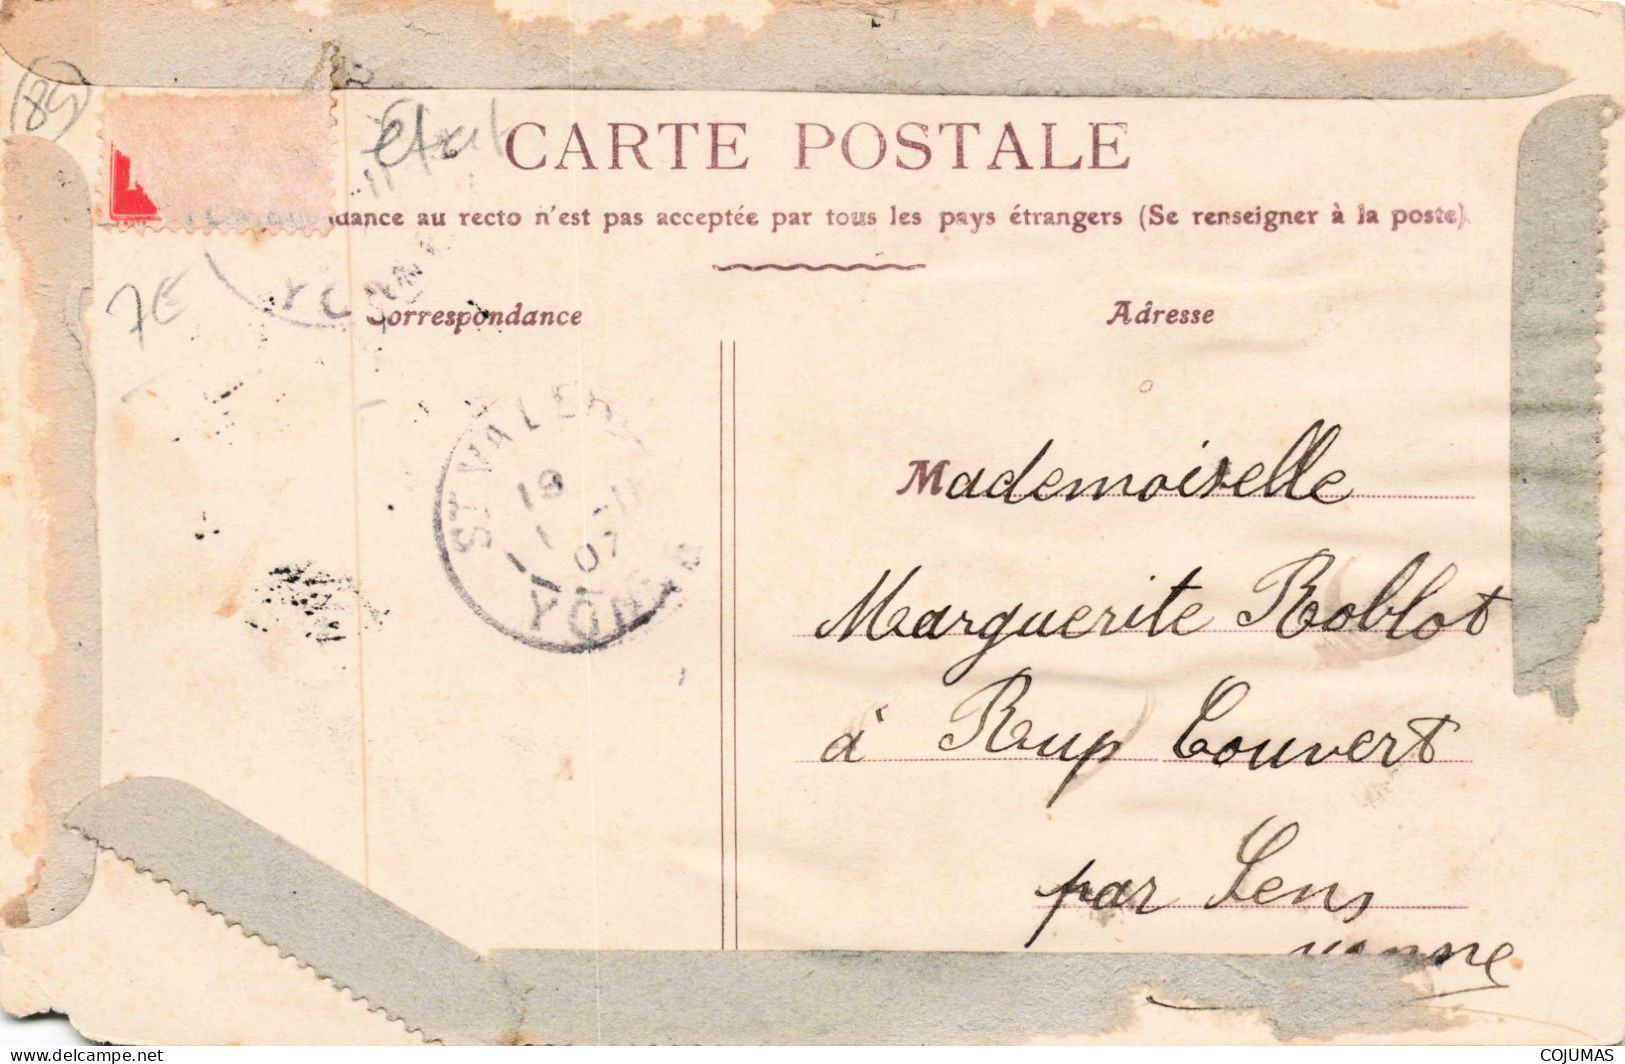 85
état
CARTE POSTALE
dance au recto n'est pas acceptée par tous les pays étrangers (Se renseigner à la poste).
7E
YO
Correspondance
Adresse
ST VALER
19
11
1
07
YONNE
Mademoiselle
Marguerite Roblot
à Rup Couvert
par Sens
Yonne
delcampe.net
COJUMAS